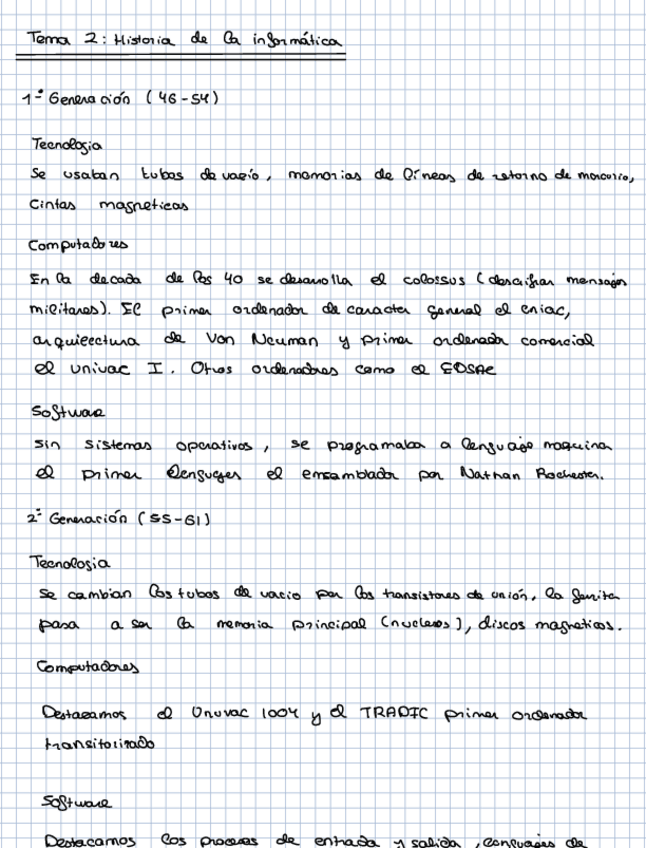 Tema 2: Historia de la informática
1ª Generación (46-54)
Tecnologia
Se usaban tubos de vacío, memorias de líneas de retorno de mercurio,
Cintas magneticas
Computadores
En la decada de los 40 se desarrolla el colossus (descifrar mensajes
militares). El primer ordenador de caracter general el eniac,
arquiectura de Von Neuman y primer ordenador comercial
el univac I. Otros ordenadores como el EDSAC
Software
Sin sistemas operativos, se programaba a lenguaje maquina
el primer lenguages el ensamblador por Nathan Rochester.
2ª Generación (55-61)
Tecnologia
Se cambian los tubos de vacio por los transistores de unión, la ferrita
pasa a ser la memoria principal (nucleos), discos magneticos.
Computadores
Destacamos el Unuvac 1004 y el TRADIC primer ordenador
transitorizado
Software
Destacamos los procesos de entrada y salida, lenguajes de